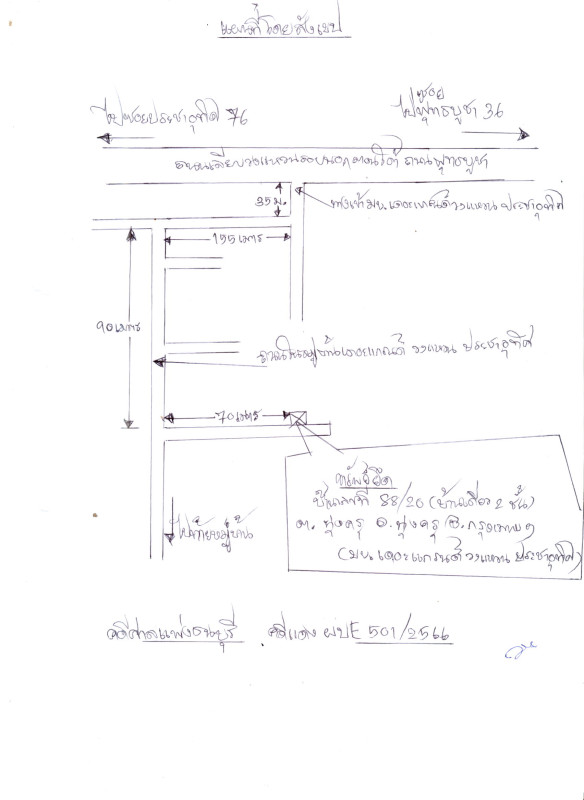 แผนที่โดยสังเขป
ไปซอยประชาอุทิศ 76
ซอย
ไปพุทธบูชา 36
ถนนเลียบวงแหวนรอบนอกด้านใต้ ถนนพุทธบูชา
35 ม.
ทางเข้า มบ. เดอะแกรนด์ วงแหวน ประชาอุทิศ
155 เมตร
90 เมตร
ถนนในหมู่บ้านเดอะแกรนด์ วงแหวน ประชาอุทิศ
70 เมตร
ทรัพย์ยึด
บ้านเลขที่ 88/20 (บ้านเดี่ยว 2 ชั้น)
ต. ทุ่งครุ อ. ทุ่งครุ จ. กรุงเทพฯ
(มบ. เดอะแกรนด์ วงแหวน ประชาอุทิศ)
ไปท้ายหมู่บ้าน
คดีศาลแพ่งธนบุรี คดีแดง ผบE 501/2566